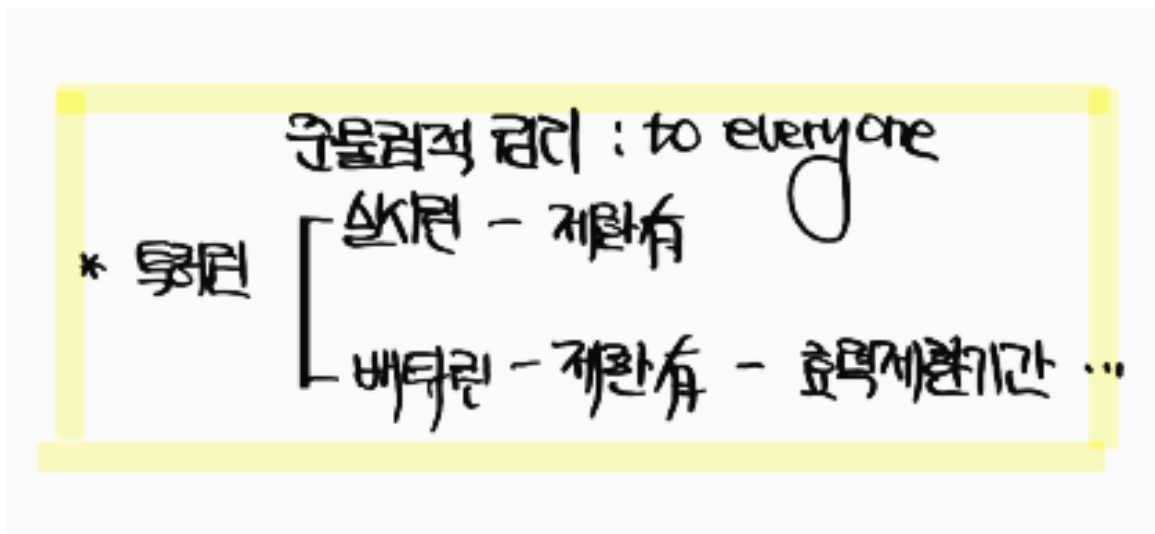 준물권적 권리 : to everyone
* 특허권
실시권 - 제한有
배타권 - 제한有 - 효력제한기간 ...